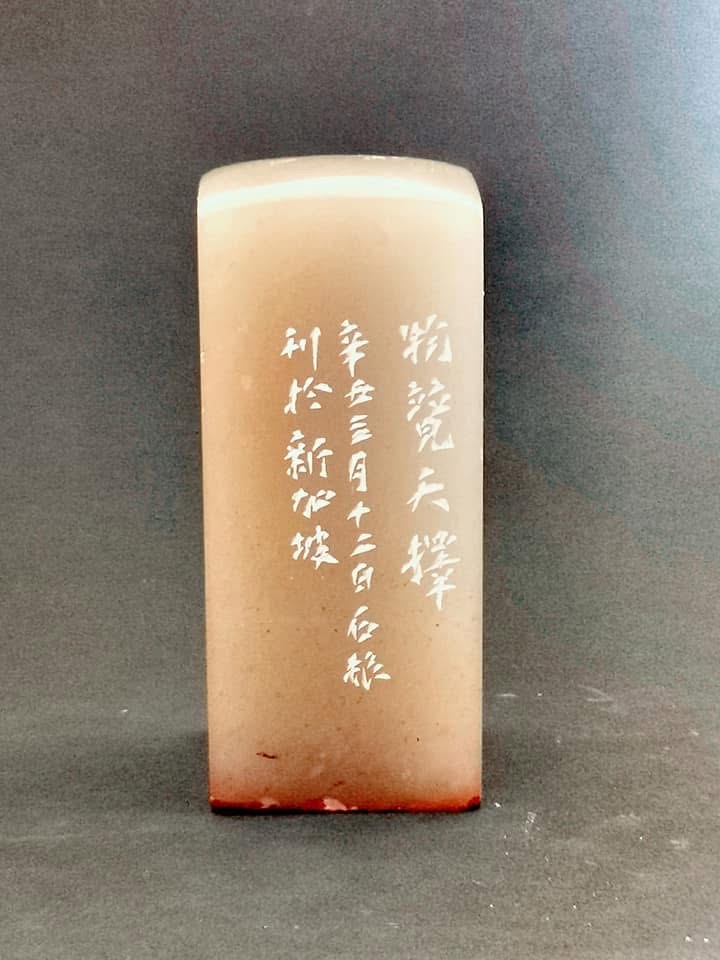 物競天擇
辛丑三月十二日石
刊於新加坡